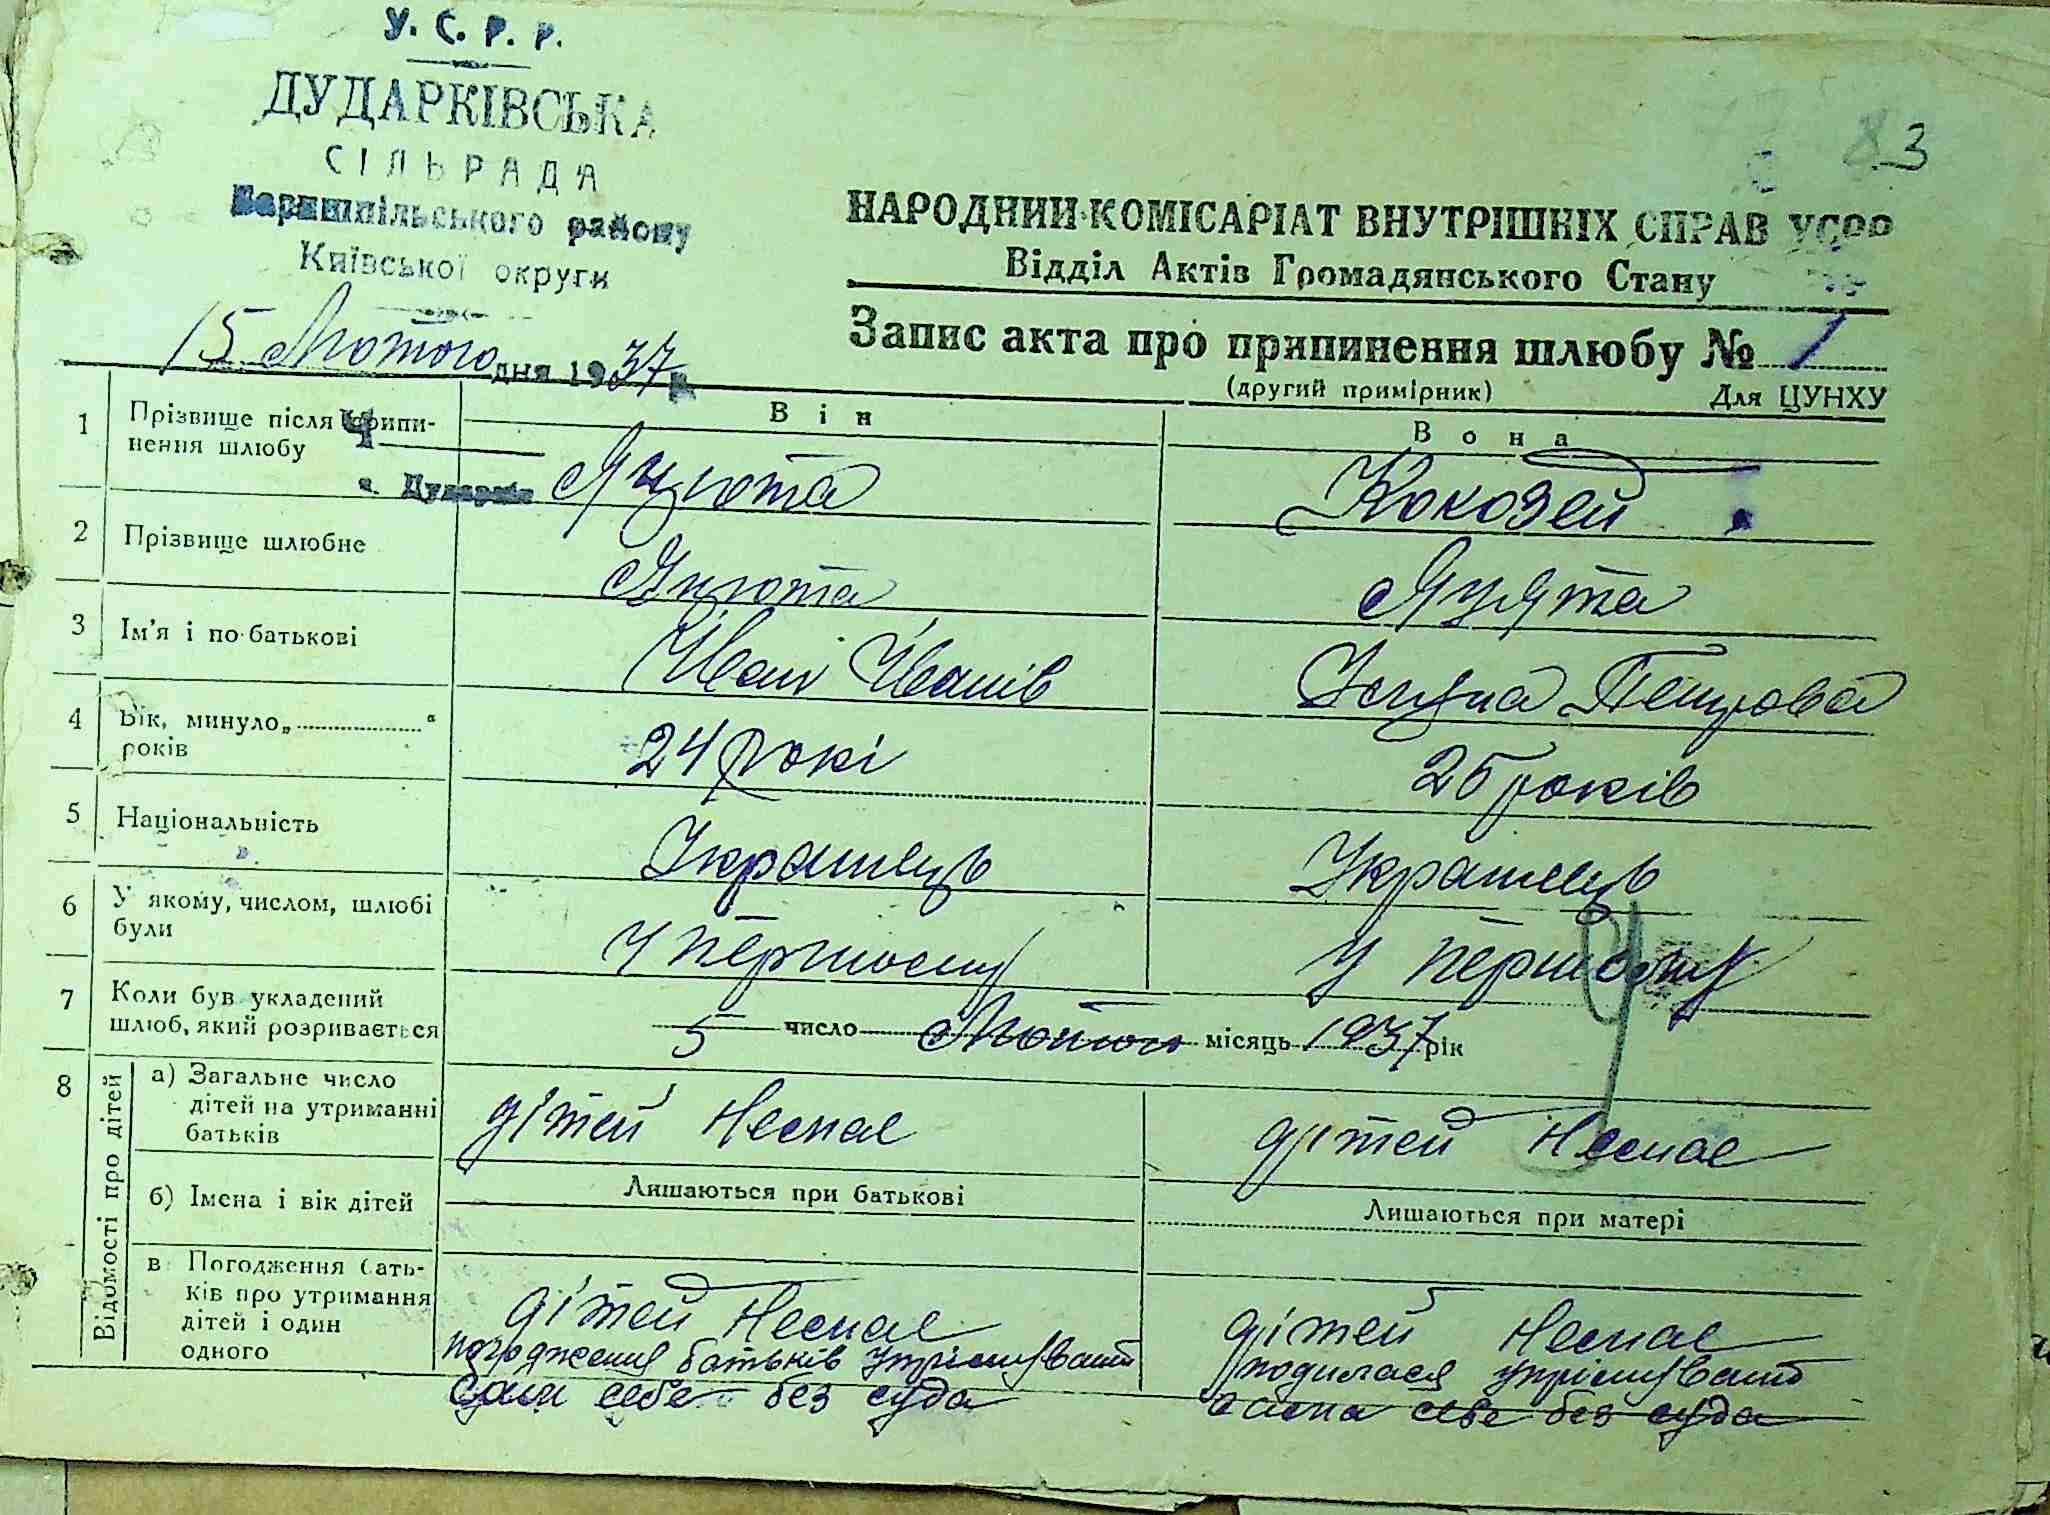 У. С. Р. Р.
ДУДАРКІВСЬКА
СІЛЬРАДА
Баришпільського району
Київської округи
83
НАРОДНИЙ КОМІСАРІАТ ВНУТРІШНІХ СПРАВ УСРР
Відділ Актів Громадянського Стану
15 Лютого дня 1937 р.
Запис акта про припинення шлюбу № 1
(другий примірник) Для ЦУНХУ
Він
Вона
1 Прізвище після припинення шлюбу
Яцюта
Кокозей
с. Дударків
2 Прізвище шлюбне
Яцюта
Яцюта
3 Ім'я і по-батькові
Іван Іванів
Петрова
4 Вік, минуло „ “ років
24 рокі
25 років
5 Національність
Українець
Українець
6 У якому, числом, шлюбі були
у першому
у першому
7 Коли був укладений шлюб, який розривається
5 число Лютого місяць 1937 рік
8 Відомості про дітей
а) Загальне число дітей на утриманні батьків
дітей Немає
дітей Немає
б) Імена і вік дітей
Лишаються при батькові
Лишаються при матері
в Погодження батьків про утримання дітей і один одного
дітей Немає
погодження батьків
себе без суда
дітей Немає
сама себе без суда